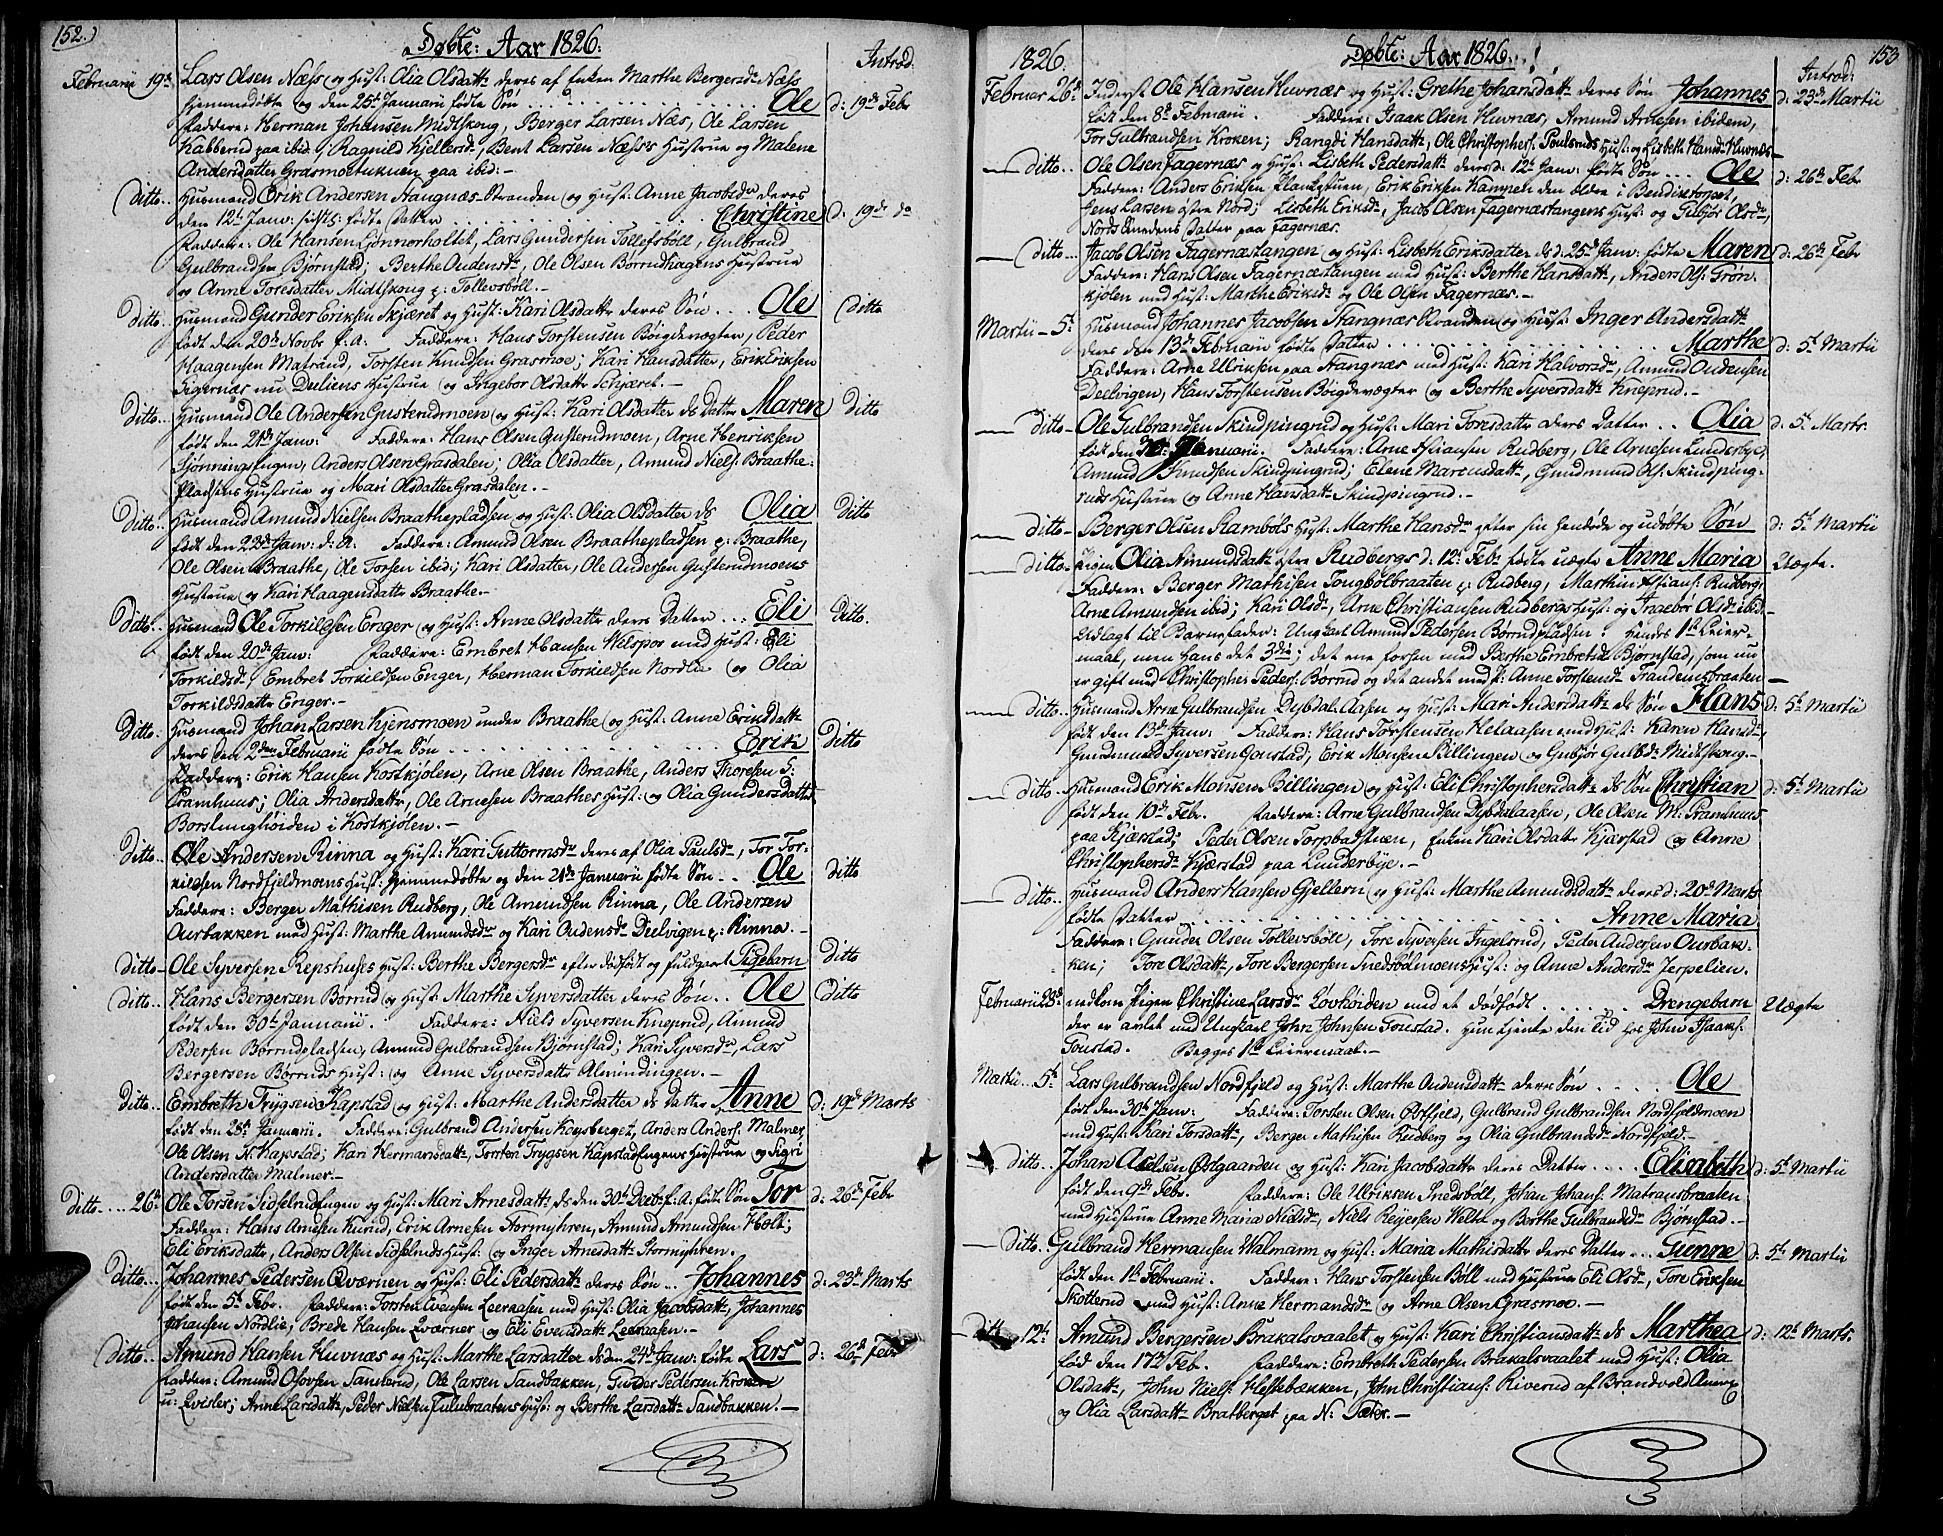 152.)
Døbte: Aar 1826.
Introd:
Februarii 19de Lars Olsen Næss og Hust: Olia Olsdattr deres af Enken Marthe Bergersdr Næss
hjemmedøbte og den 25de Januarii fødte Søn . . . Ole d: 19de Febr
Faddere: Herman Johansen Midtskoug, Berger Larsen Næs, Ole Larsen
Kabberud paa ibid; Ragnild Kjellersdr, Bent Larsen Næss's Hustrue og Malene
Andersdatter Grasmoestuenen paa ibid:-
Ditto.. Husmand Erik Andersen Haugnæs-Stranden og Hust: Anne Jacobsdr deres
den 12te Janr: sidstl: fødte Datter . . . Christine d. 19de do
Faddere: Ole Hansen Linnerholtet, Lars Gundersen Tollefsböll, Gulbrand
Gulbrandsen Bjørnstad; Berthe Oudensdr, Ole Olsen Børrudhagens Hustrue
og Anne Toresdatter Midtskoug p: Tollevsböll.-
Ditto.. Husmand Gunder Eriksen Skjæret og Hust: Kari Olsdattr deres Søn . . . Ole Ditto
født den 20de Novbr f. A. Faddere: Hans Torstensen Bøigdevogter, Peder
Haagensen Matrand, Torsten Knudsen Grasmoe; Kari Hansdatter, Erik Eriksen
Sigernæs nu Deeliens Hustrue og Ingebor Olsdattr Schjæret.-
Ditto.. Husmand Ole Andersen Gusterudmoen og Hust: Kari Olsdatter ds Datter Maren Ditto
født den 21de Janr: Faddere: Hans Olsen Gusterudmoen, Arne Henriksen
Sjønningsengen, Anders Olsen Grasdalen; Olia Olsdatter, Amund Niels: Braathe-
Pladsens Hustrue og Mari Olsdatter Grasdalen.-
Ditto.. Husmand Amund Nielsen Braathepladsen og Hust: Olia Olsdatter ds Olia Ditto
født den 23de Janr: d: A. Faddere: Amund Olsen Braathepladsen p: Braathe,
Ole Olsen Braathe, Ole Torsen ibid; Kari Olsdatter, Ole Andersen Gusterudmoens
Hustrue og Kari Haagensdattr Braathe.-
Ditto.. Husmand Ole Torkildsen Enger og Hust: Anne Olsdatter deres Datter . . . Eli Ditto.
født den 20de Janr: Faddere: Embret Hansen Velspor med Hust: Eli
Torkildsdr, Embret Torkildsen Enger, Herman Torkildsen Nordlie og Olia
Torkildsdattr Enger.-
Ditto. Husmand Johan Larsen Kjensmoen under Braathe og Hust: Anne Eriksdattr
deres den 2den Februarii fødte Søn . . . Erik Ditto
Faddere: Erik Hansen Kostkjølen, Arne Olsen Braathe, Anders Thoresen S:
Framhuus; Olia Andersdattr, Ole Arnesen Braathes Hust: og Olia Gundersdatter
Borstinghöiden i Kostkjölen.-
Ditto.. Ole Andersen Rinna og Hust: Kari Guttormsdr deres af Olia Paulsdr, Tor Tor-
kildsen Nordfjeldmoens Hust: hjemmedøbte og den 21de Januarii fødte Søn . . . Ole Ditto
Faddere: Berger Mathisen Rudberg, Ole Amundsen Rinna, Ole Andersen
Ourbakken med Hust: Marthe Amundsdr og Kari Oudensdr Deelvigen p: Rinna.-
Ditto.. Ole Syversen Repshuses Hust: Berthe Bergersdr efter dødfødt og fuldgaaet Pigebarn Ditto
Ditto.. Hans Bergersen Børrud og Hust: Marthe Syversdatter deres Søn . . Ole Ditto
født den 30te Januarii. Faddere: Niels Syversen Kneprud, Amund
Pedersen Børrudpladsen, Amund Gulbrandsen Bjørnstad; Kari Syversdr, Lars
Bergersen Børruds Hust: og Anne Syversdattr Almindingen.-
Ditto.. Embreth Trygsen Kapstad og Hust: Marthe Andersdatter ds Datter Anne d: 19de Marts
født den 25de Januarii. Faddere: Gulbrand Andersen Kongsberget, Anders Anders: Malmer,
Ole Olsen N. Kapstad; Kari Hermansdattr, Torsten Trygsen Kapstadengens Hustrue og Sigri
Andersdatter Malmer.-
Ditto . . . 26de Ole Torsen Sidselrudengen og Hust: Mari Arnesdattr ds den 30te Decbr f. A: fødte Søn Tor d: 26de Febr
Faddere: Hans Arnesen Kurud, Erik Arnesen Stormyhren, Amund Amundsen Holt;
Eli Eriksdattr, Anders Olsen Sidselruds Hust: og Inger Arnesdattr Stormyhren.-
Ditto.. Johannes Pedersen Qværnen og Hust: Eli Pedersdattr deres Søn . . Johannes d: 23de Marts
født den 5te Febr. Faddere: Torsten Evensen Leeraasen med Hust: Olia Jacobsdattr, Johannes
Johansen Nordlie, Brede Hansen Qværner og Eli Evensdattr Leeraasen.-
Ditto.. Amund Hansen Huvnæs og Hust: Marthe Larsdatter ds den 24de Janr: fødte Lars d: 26de Febr
Faddere: Amund Olovsen Sanderud, Ole Larsen Sandbakken, Gunder Pedersen Kroken
u: Qvisler; Anne Larsdattr, Peder Nielsen Fulubraatens Hust: og Berthe Larsdattr Sandbakken.-
153
1826. Døbte: Aar 1826.
Introd:
Februar 26de Inderst Ole Hansen Huvnæs og Hust: Grethe Johansdattr deres Søn Johannes d: 23de Martii
født den 8de Februarii. Faddere: Isaak Olsen Huvnæs, Amund Arnesen ibidem,
Tor Gulbrandsen Kroken; Rangdi Hansdattr, Ole Christophers: Poulsruds Hust: og Lisbeth Hansdr Huvnæs-
ditto.. Ole Olsen Fagernæs og Hust: Lisbeth Pedersdattr deres d: 12te Janr: fødte Søn . . . Ole d: 26de Febr
Faddere: Anders Eriksen Plankstuen, Erik Eriksen Kampen den Ældre i Bendixtorpet,
Jens Larsen østre Nord; Lisbeth Eriksdr, Jacob Olsen Fagernæstangens Hust: og Gubjør Olsdr,
Nord Smedens Datter paa Fagernæs.
ditto.. Jacob Olsen Fagernæstangen og Hust: Lisbeth Eriksdatter ds d: 25de Janr: fødte Maren d: 26de Febr
Faddere: Hans Olsen Fagernæstangen med Hust: Berthe Hansdattr, Anders Ols: Grøn-
kjølen med Hust: Marthe Eriksdr og Ole Olsen Fagernæs.-
Martii - 5te Husmand Johannes Jacobsen Haugnæs Stranden og Hust: Inger Andersdattr
deres den 13de Februarii fødte Datter . . . Marthe d: 5te Martii
Faddere: Arne Ulriksen paa Haugnæs med Hust: Kari Halvorsdr, Amund Oudensen
Deelvigen, Hans Torstensen Bøigdevogter og Berthe Syversdattr Kneprud.-
ditto- Ole Gulbrandsen Skindpungrud og Hust: Mari Toresdattr deres Datter . . Olia d: 5te Marts.
født den 30te Januarii. Faddere: Arne Christiansen Rudberg, Ole Arnesen Lunderbye,
Amund Knudsen Skindpungrud; Elene Marcusdattr, Gundmund Ols: Skindpung-
ruds Hustrue og Anne Hansdattr Skindpungrud.-
ditto- Berger Olsen Ramböls Hust: Marthe Hansdr efter sin hendøde og udøbte Søn d: 5te Martii
ditto- Pigen Olia Amundsdattr østre Rudbergs d. 12te Febr fødte uægte Anne Maria Uægte.
Faddere: Berger Mathisen Tougbölbraaten p: Rudberg, Marthin Christians: Rudberg,
Arne Amundsen ibid; Kari Olsdr, Arne Christiansen Rudbergs Hust: og Ingebor Olsdr ibid.-
Udlagt til Barnefader: Ungkarl Amund Pedersen Børrudpladsen. Hendes 1ste Leier-
maal, men hans det 3die; det ene forhen med Berthe Embretsdr Bjørnstad, som nu
er gift med Christopher Peders: Børrud og det andet med P: Anne Torstensdr Trandemsbraaten-
ditto.. Husmand Arne Gulbrandsen Dybdalaasen og Hust: Mari Andersdattr ds Søn Hans d: 5te Martii
født den 13de Janr: Faddere: Hans Torstensen Helaasen med Hust: Karen Hansdr,
Gundmund Syversen Gonstad; Erik Monsen Billingen og Gubjør Gulbdr Midtskoug.-
ditto. Husmand Erik Monsen Billingen og Hust: Eli Christophersdattr ds Søn Christian d: 5te Martii
født den 10de Febr. Faddere: Arne Gulbrandsen Dybdalaasen, Ole Olsen M. Framhuus
paa Kjærstad; Peder Olsen Torpbadstuen, Enken Kari Olsdattr Kjærstad og Anne
Christophersdr Kjærstad paa Lunderbye.-
Ditto.. Husmand Anders Hansen Gjellern og Hust: Marthe Amundsdattr deres d: 20de Marts
fødte Datter . . . Anne Maria
Faddere: Gunder Olsen Tollevsböll, Tore Syversen Ingelsrud, Peder Andersen Ourbak-
ken; Tore Olsdattr, Tore Bergersen Snedsbölmoens Hust: og Anne Andersdr Jerpelien.
Februarii 28de nedkom Pigen Christine Larsdr Lövhöiden med et dødfødt . . . Drengebarn Uægte
der er avlet med Ungkarl John Johnsen Foustad. Hun tjente den Tid hos John Isaaks:
Foustad. Begges 1ste Leiermaal.-
Martii . . 5te Lars Gulbrandsen Nordfjeld og Hust: Marthe Oudensdattr deres Søn . . . Ole
født den 30te Janr: Faddere: Torsten Olsen Østfjeld, Gulbrand Gulbrandsen Nordfjeldmoen
med Hust: Kari Torsdattr, Berger Mathisen Rudberg og Olia Gulbrandsdr Nordfjeld.-
ditto.. Johan Axelsen Østgaarden og Hust: Kari Jacobsdattr deres Datter . . . Elisabeth d: 5te Martii
født den 9de Febr. Faddere: Ole Ulriksen Snedsböll, Johan Johans: Matransbraaten
med Hustrue Anne Maria Nielsdr, Niels Reyersen Velta og Berthe Gulbrandsdr Bjørnstad.-
ditto. Gulbrand Hermansen Walmann og Hust: Maria Mathisdattr deres Datter . . . Gunne d: 5te Martii
født den 1ste Februarii. Faddere: Hans Torstensen Böll med Hustrue Eli Olsdr, Tore Eriksen
Skotterud med Hust: Anne Hermandsdr og Arne Olsen Grasmoe.-
ditto 12te Amund Bergersen Brakalsvaalet og Hust: Kari Christiansdattr ds Marthea d: 12te Marts
fød den 17de Feb. Faddere: Embreth Pedersen Brakalsvaalet med Hust: Olia
Olsdattr, John Niels: Hestebækken, John Christians: Riverud af Brandvold Annex
og Olia Larsdattr Bratberget paa N: Sæter.-